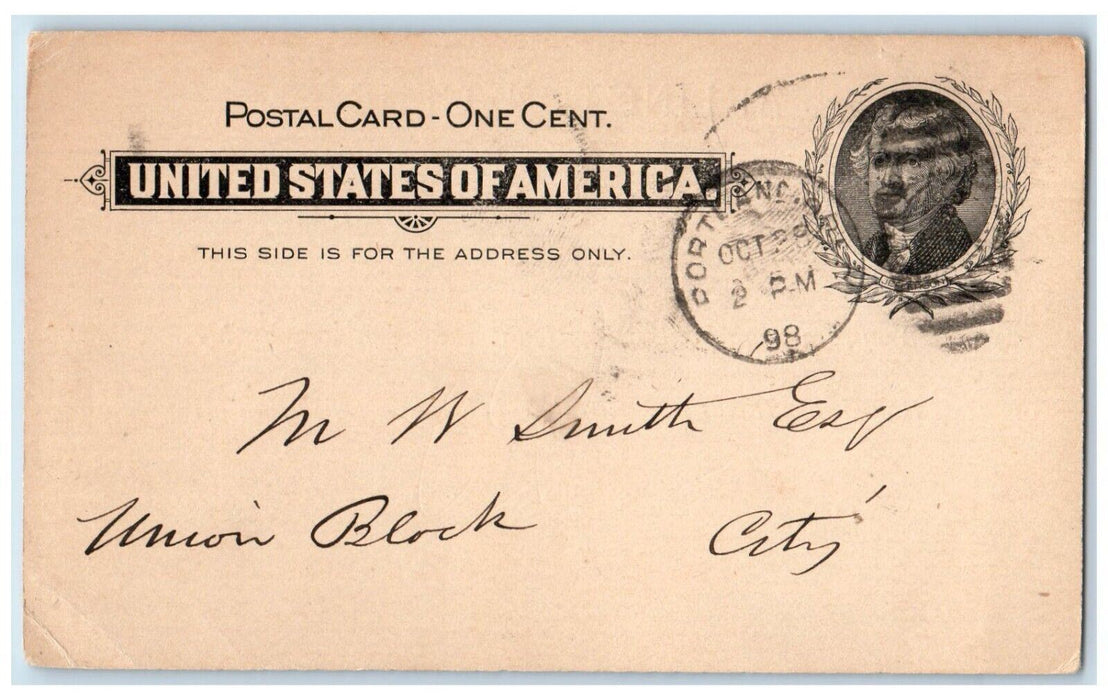 POSTAL CARD - ONE CENT.
UNITED STATES OF AMERICA.
THIS SIDE IS FOR THE ADDRESS ONLY.
PORTLAND,
OCT 28
2 PM
98
M W Smith Esq
Union Block City